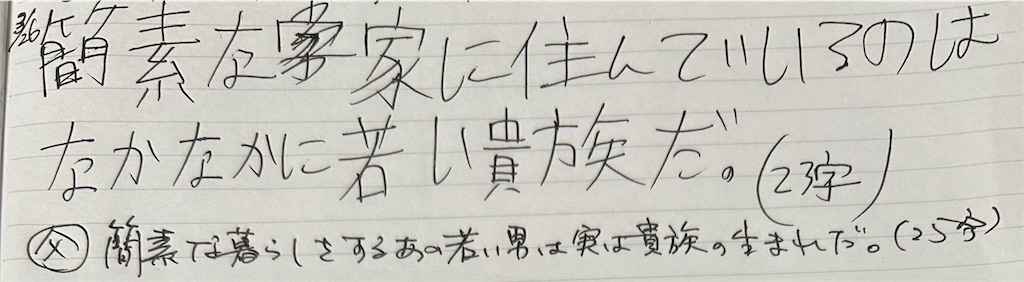 3/26 簡素な家に住んでいるのは
なかなかに若い貴族だ。(23字)
父 簡素な暮らしをするあの若い男は実は貴族の生まれだ。(25字)